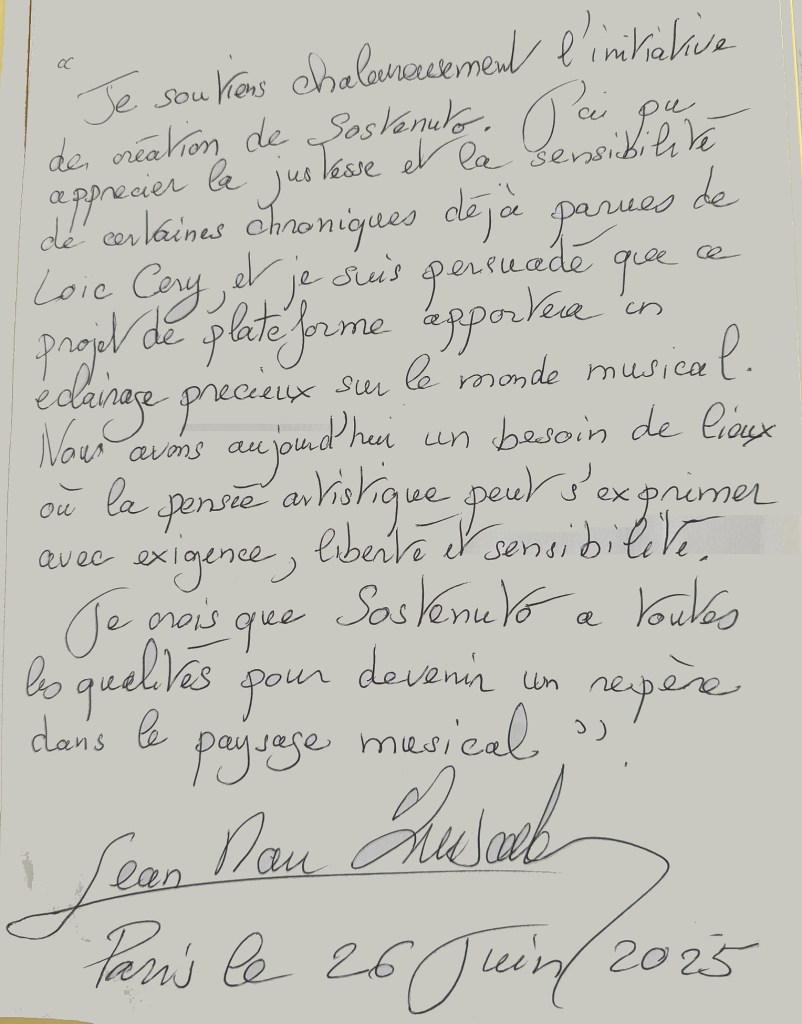 "
Je soutiens chaleureusement l'initiative
de création de Sostenuto. J'ai pu
apprécier la justesse et la sensibilité
de certaines chroniques déjà parues de
Loïc Céry, et je suis persuadé que ce
projet de plateforme apportera un
éclairage précieux sur le monde musical.
Nous avons aujourd'hui un besoin de lieux
où la pensée artistique peut s'exprimer
avec exigence, liberté et sensibilité.
Je crois que Sostenuto a toutes
les qualités pour devenir un repère
dans le paysage musical ".
Jean Marc
Paris le 26 Juin 2025